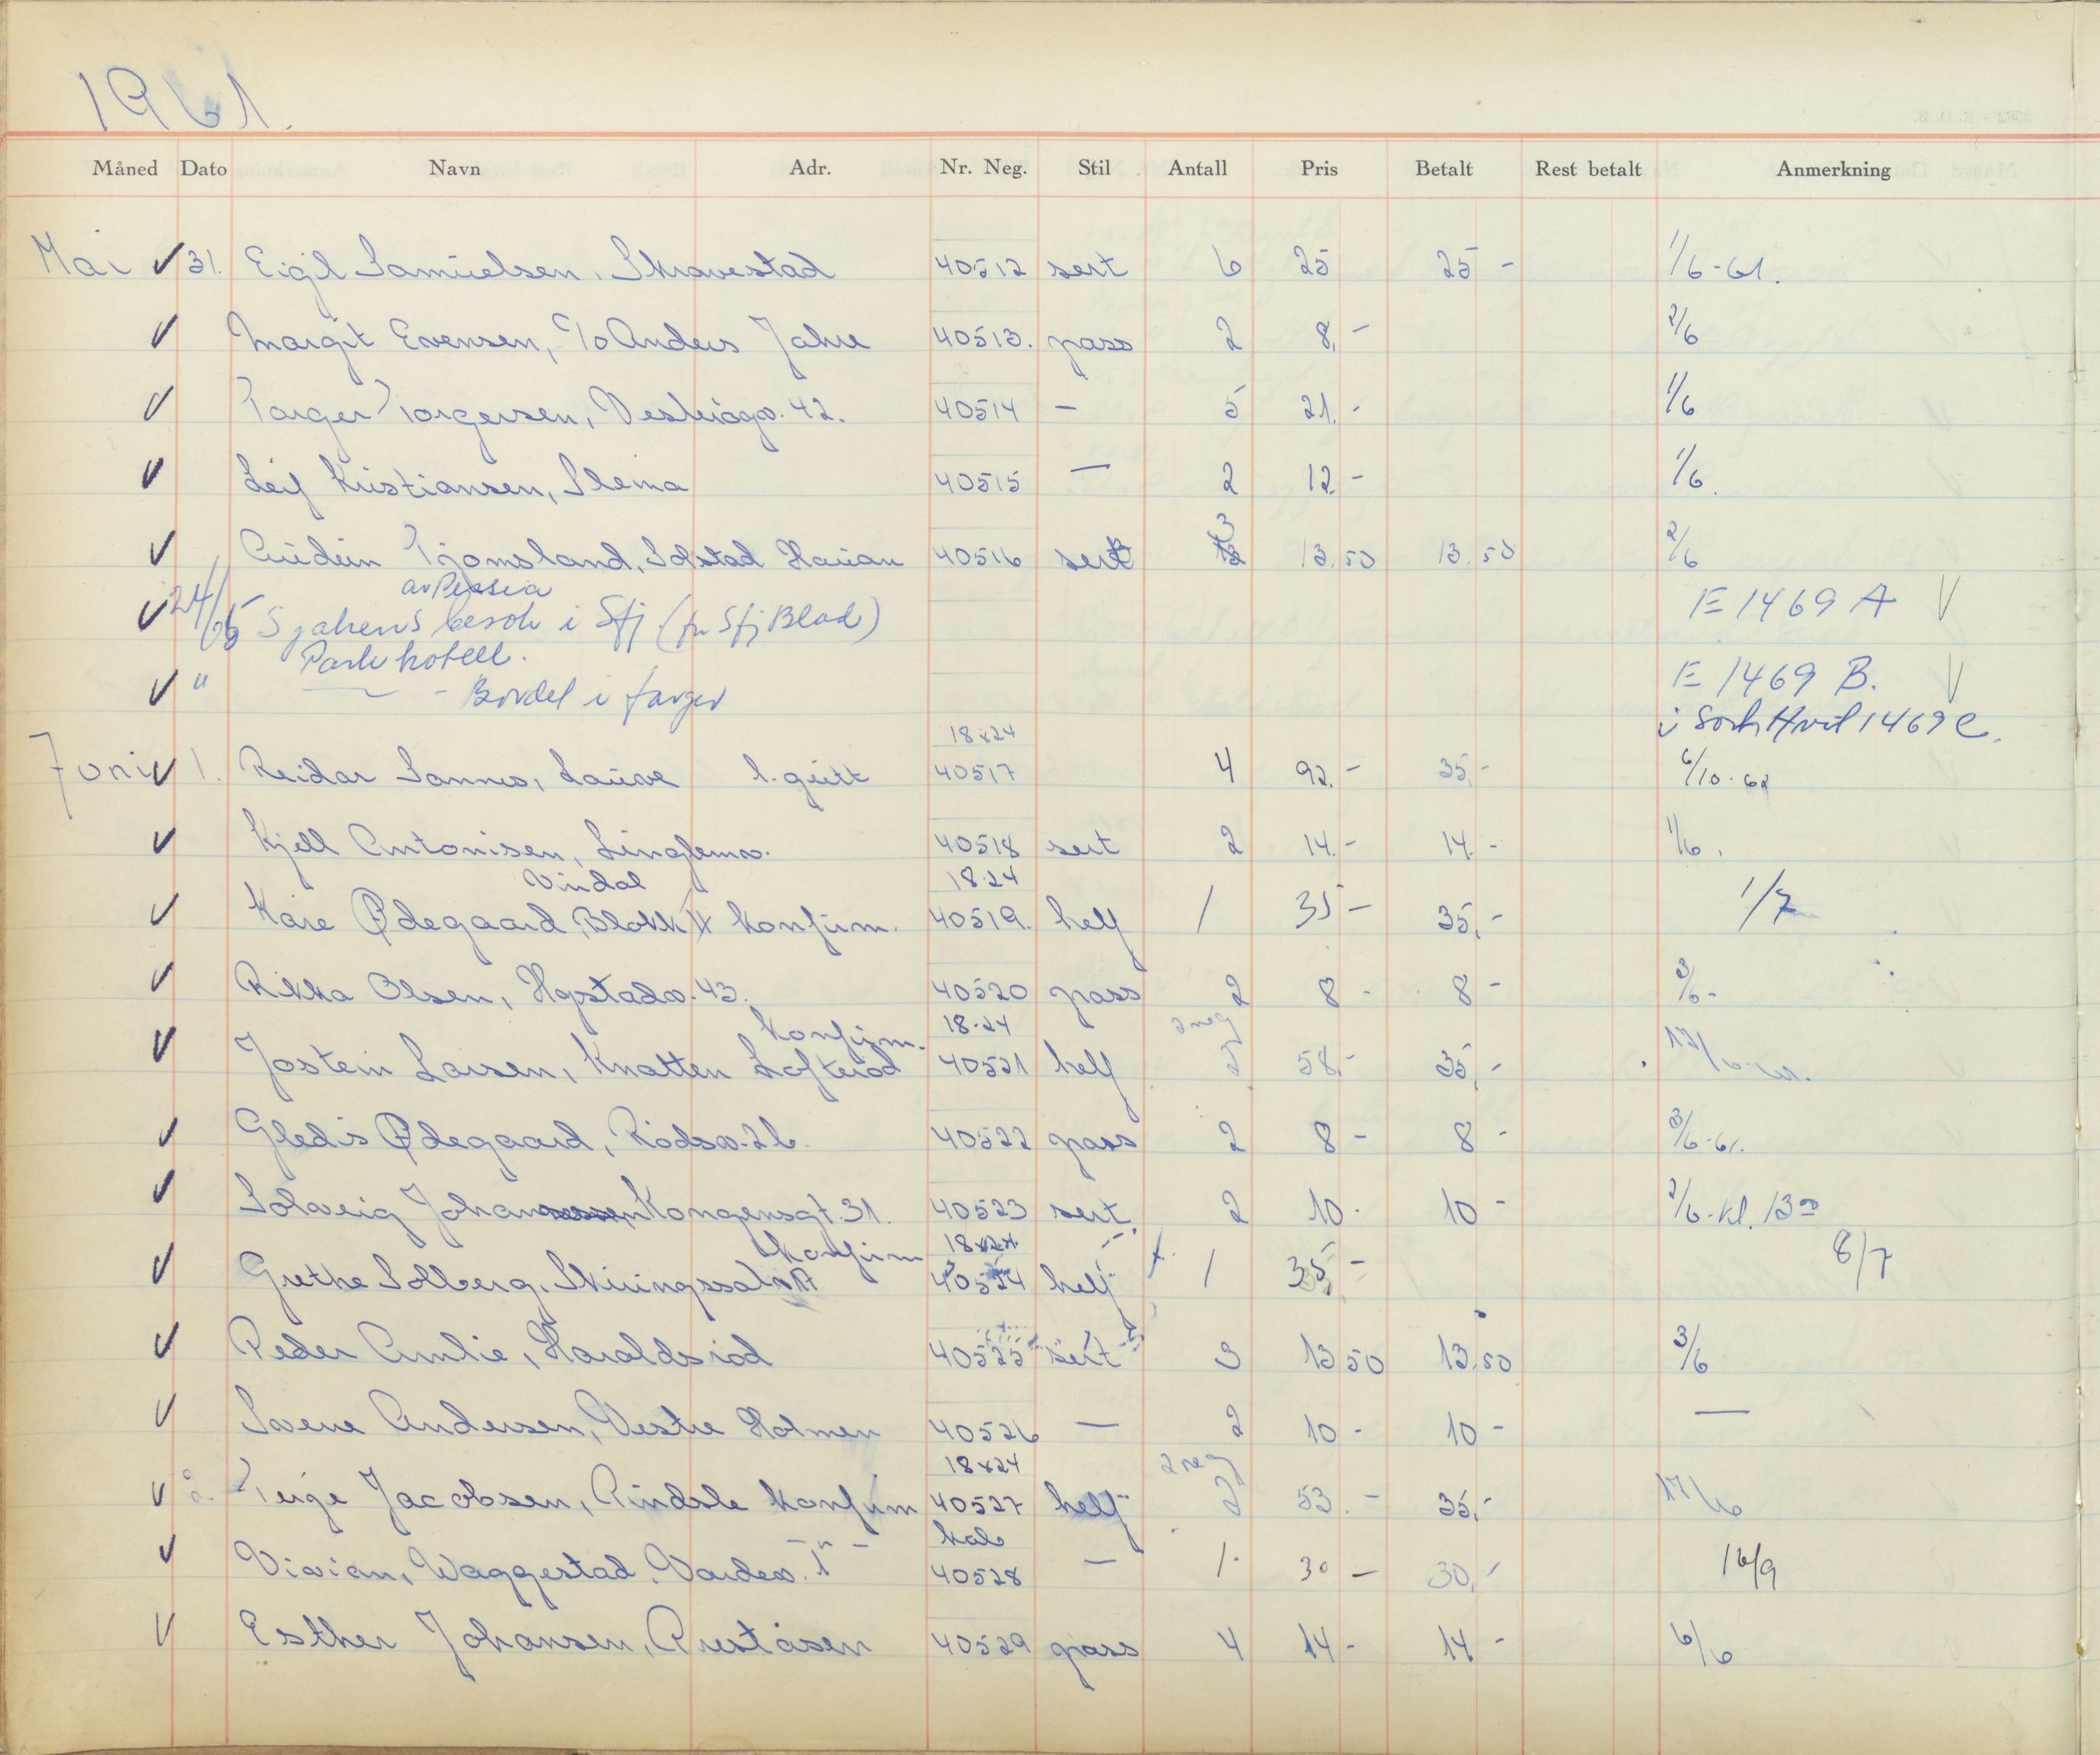 1961.
Måned Dato Navn Adr. Nr. Neg. Stil Antall Pris Betalt Rest betalt Anmerkning
Mai ✓ 31. Eigil Samuelsen, Skravestad 40512 sert 6 25 25 - 1/6-61.
✓ Margit Evensen, c/o Anders Jahre 40513. pass 2 8,- 2/6
✓ Torger Torgersen, 42. 40514 — 5 21.- 1/6
✓ Leif Kristiansen, Slema 40515 — 2 12.- 1/6.
✓ Audun Tjomsland, Solstad Hauan 40516 sert 3 13.50 13.50 2/6
av Persia
✓ 24/5 Sjahens besøk i Sfj (for Sfj Blad) E 1469 A V
Park hotell.
✓ " — - Bordet i farger E 1469 B. V
i Sort Hvit 1469 C.
18x24
Juni ✓ 1. Reidar Sannes, Lauve l. gutt 40517 4 92.- 35,- 6/10-62
✓ Kjell Antonisen, Lingelemv. 40518 sert 2 14.- 14.- 1/6.
Vindal 18.24
✓ Kåre Ødegaard, Blokk 4 konfirm. 40519. helf 1 35- 35,- 1/7
✓ Rikka Olsen, Hystadv. 43. 40520 pass 2 8 - 8 - 3/6-
konfirm. 18.24 2 neg
✓ Jostein Larsen, Knatten Lofterød 40521 helf 2 58,- 35,-
✓ Gledis Ødegaard, Rødsv. 26. 40522 pass 2 8 - 8 - 3/6-61.
✓ Solveig Johannessen Kongensgt. 31. 40523 sert. 2 10. 10 - 2/6-kl. 13 00
konfirm 18x24
✓ Grethe Solberg, Skiringssalv. 40524 helf 1 35,- 8/7
✓ Peder Amlie, Haraldsrød 40525 sert 3 13 50 13.50 3/6
✓ Svene Andersen, Vestre Holmen 40526 — 2 10 - 10 - —
18x24 2 neg
✓ 2. Terge Jacobsen, Rindsle konfirm 40527 helf 2 53.- 35,- 17/6
kab
✓ Vivian, Waggestad, Vardev. - " - 40528 — 1. 30 - 30,- 16/9
✓ Esther Johansen, Preståsen 40529 pass 4 14 - 14 - 6/6